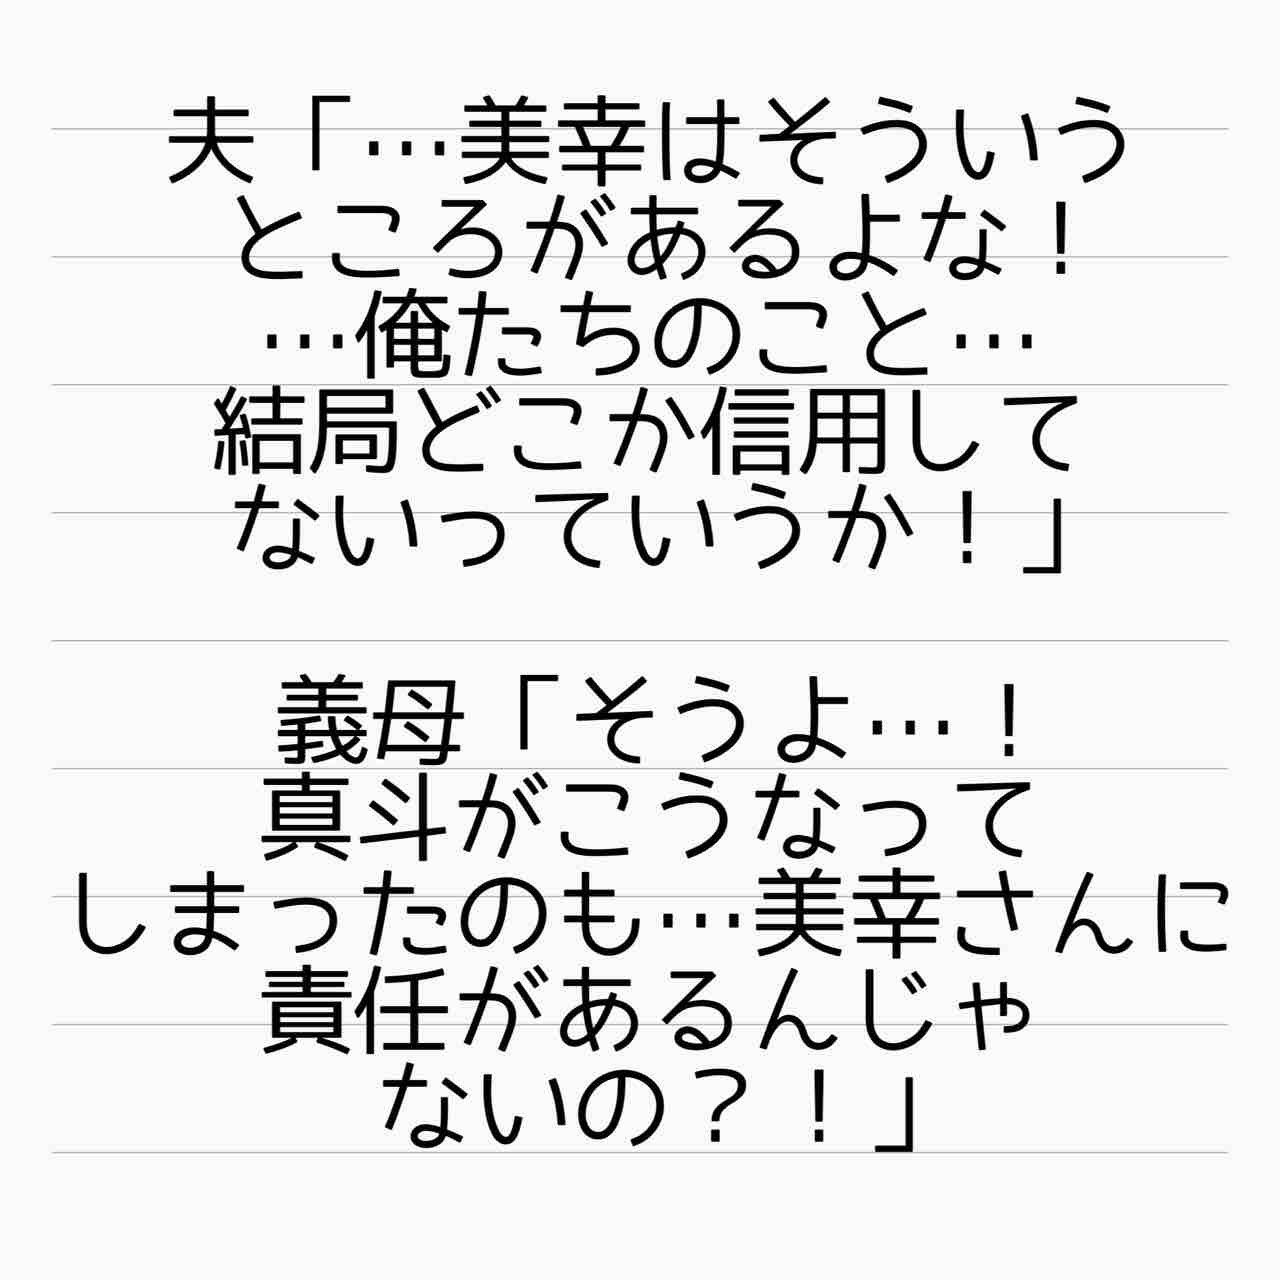 夫「…美幸はそういう
ところがあるよな！
…俺たちのこと…
結局どこか信用して
ないっていうか！」
義母「そうよ…！
真斗がこうなって
しまったのも…美幸さんに
責任があるんじゃ
ないの？！」